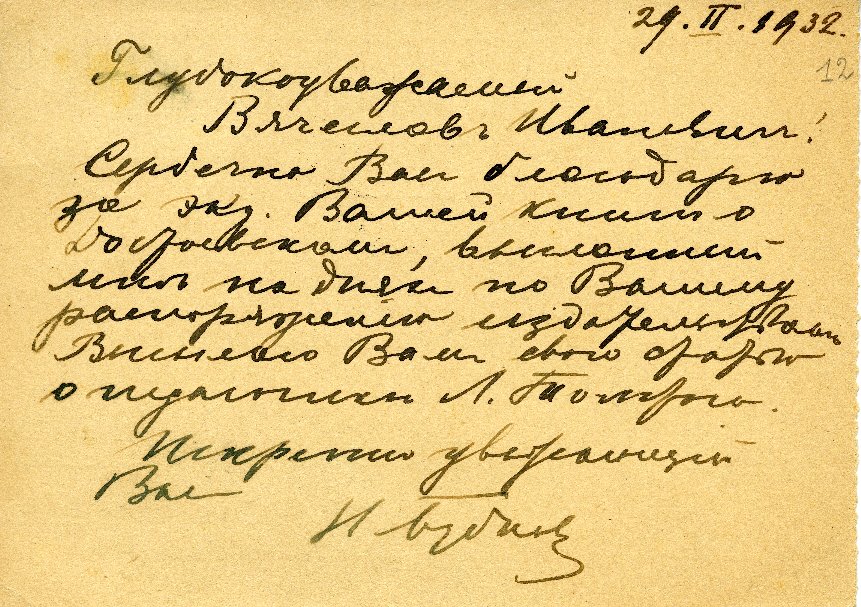 29.II.1932.
12
Глубокоуважаемый
Вячеславъ Ивановичъ!
Сердечно Вам благодарю
за экз. Вашей книги о
Достоевском, высланный
мне на днях по Вашему
распоряжению издательством
Высылаю Вам свою статью
о педагогике Л. Толстого.
Искренно уважающий
Вас
Н Бубнов